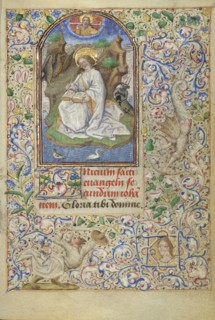 Inicium sancti
evangelii se
cundum ioha
nem. Gloria tibi domine.